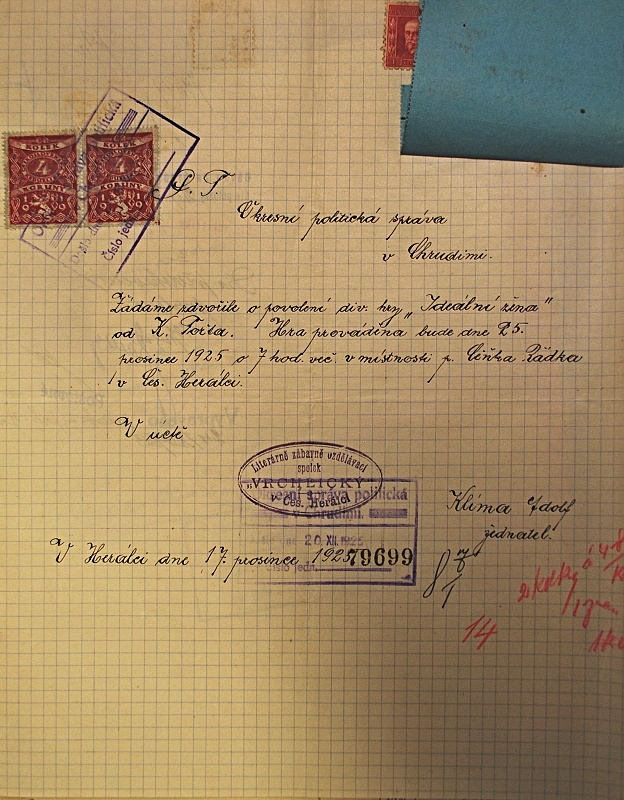 KOLEK
4
KORUNY
KOLEK
4
KORUNY
Číslo jed
P. T.
Okresní politická správa
v Chrudimi.
Žádáme zdvořile o povolení div. hry „Ideální žena"
od K. Forta. Hra prováděna bude dne 25.
prosince 1925 o 7 hod. več. v místnosti p. Čeňka Rádka
v Čes. Herálci.
V úctě
Literárně zábavně vzdělávací
spolek
„VRCHLICKÝ"
v Čes. Herálci
správa politická
v Chrudimi.
20 XII. 1925
Číslo jedn.
79699
Klíma Adolf
jednatel.
V Herálci dne 17. prosince 1925
2 kolky á 4
14